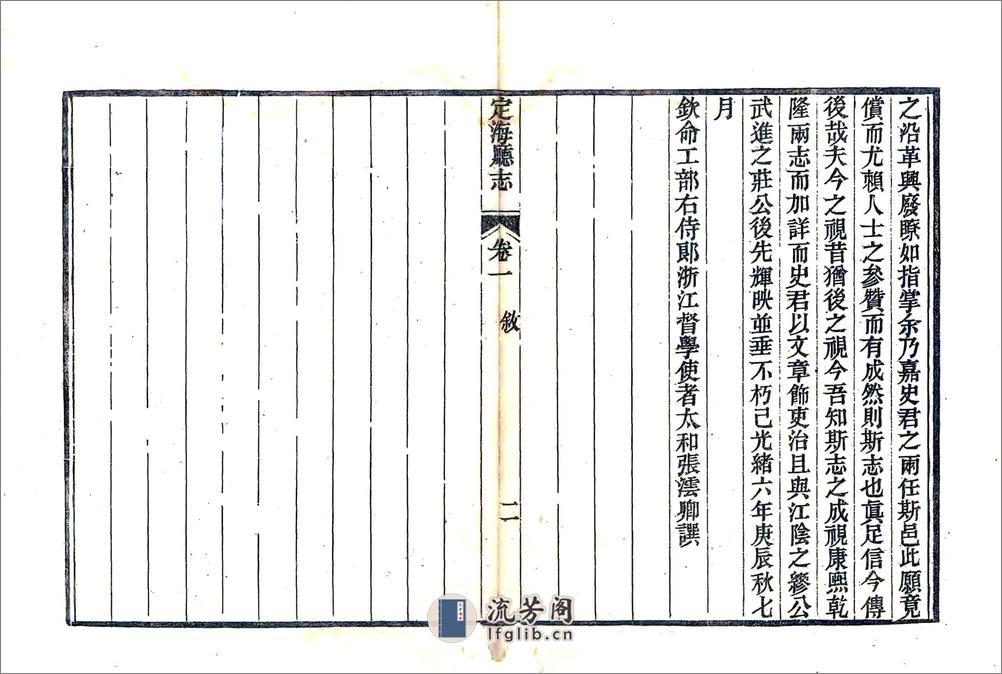 之沿革興廢瞭如指掌余乃嘉史君之兩任斯邑此願竟
償而尤賴人士之參贊而有成然則斯志也眞足信今傳
後哉夫今之視昔猶後之視今吾知斯志之成視康熙乾
隆兩志而加詳而史君以文章飾吏治且與江陰之繆公
武進之莊公後先輝映並垂不朽已光緒六年庚辰秋七
月
欽命工部右侍郞浙江督學使者太和張澐卿譔
定海廳志
卷一
敘
二
流芳阁
lfglib.cn